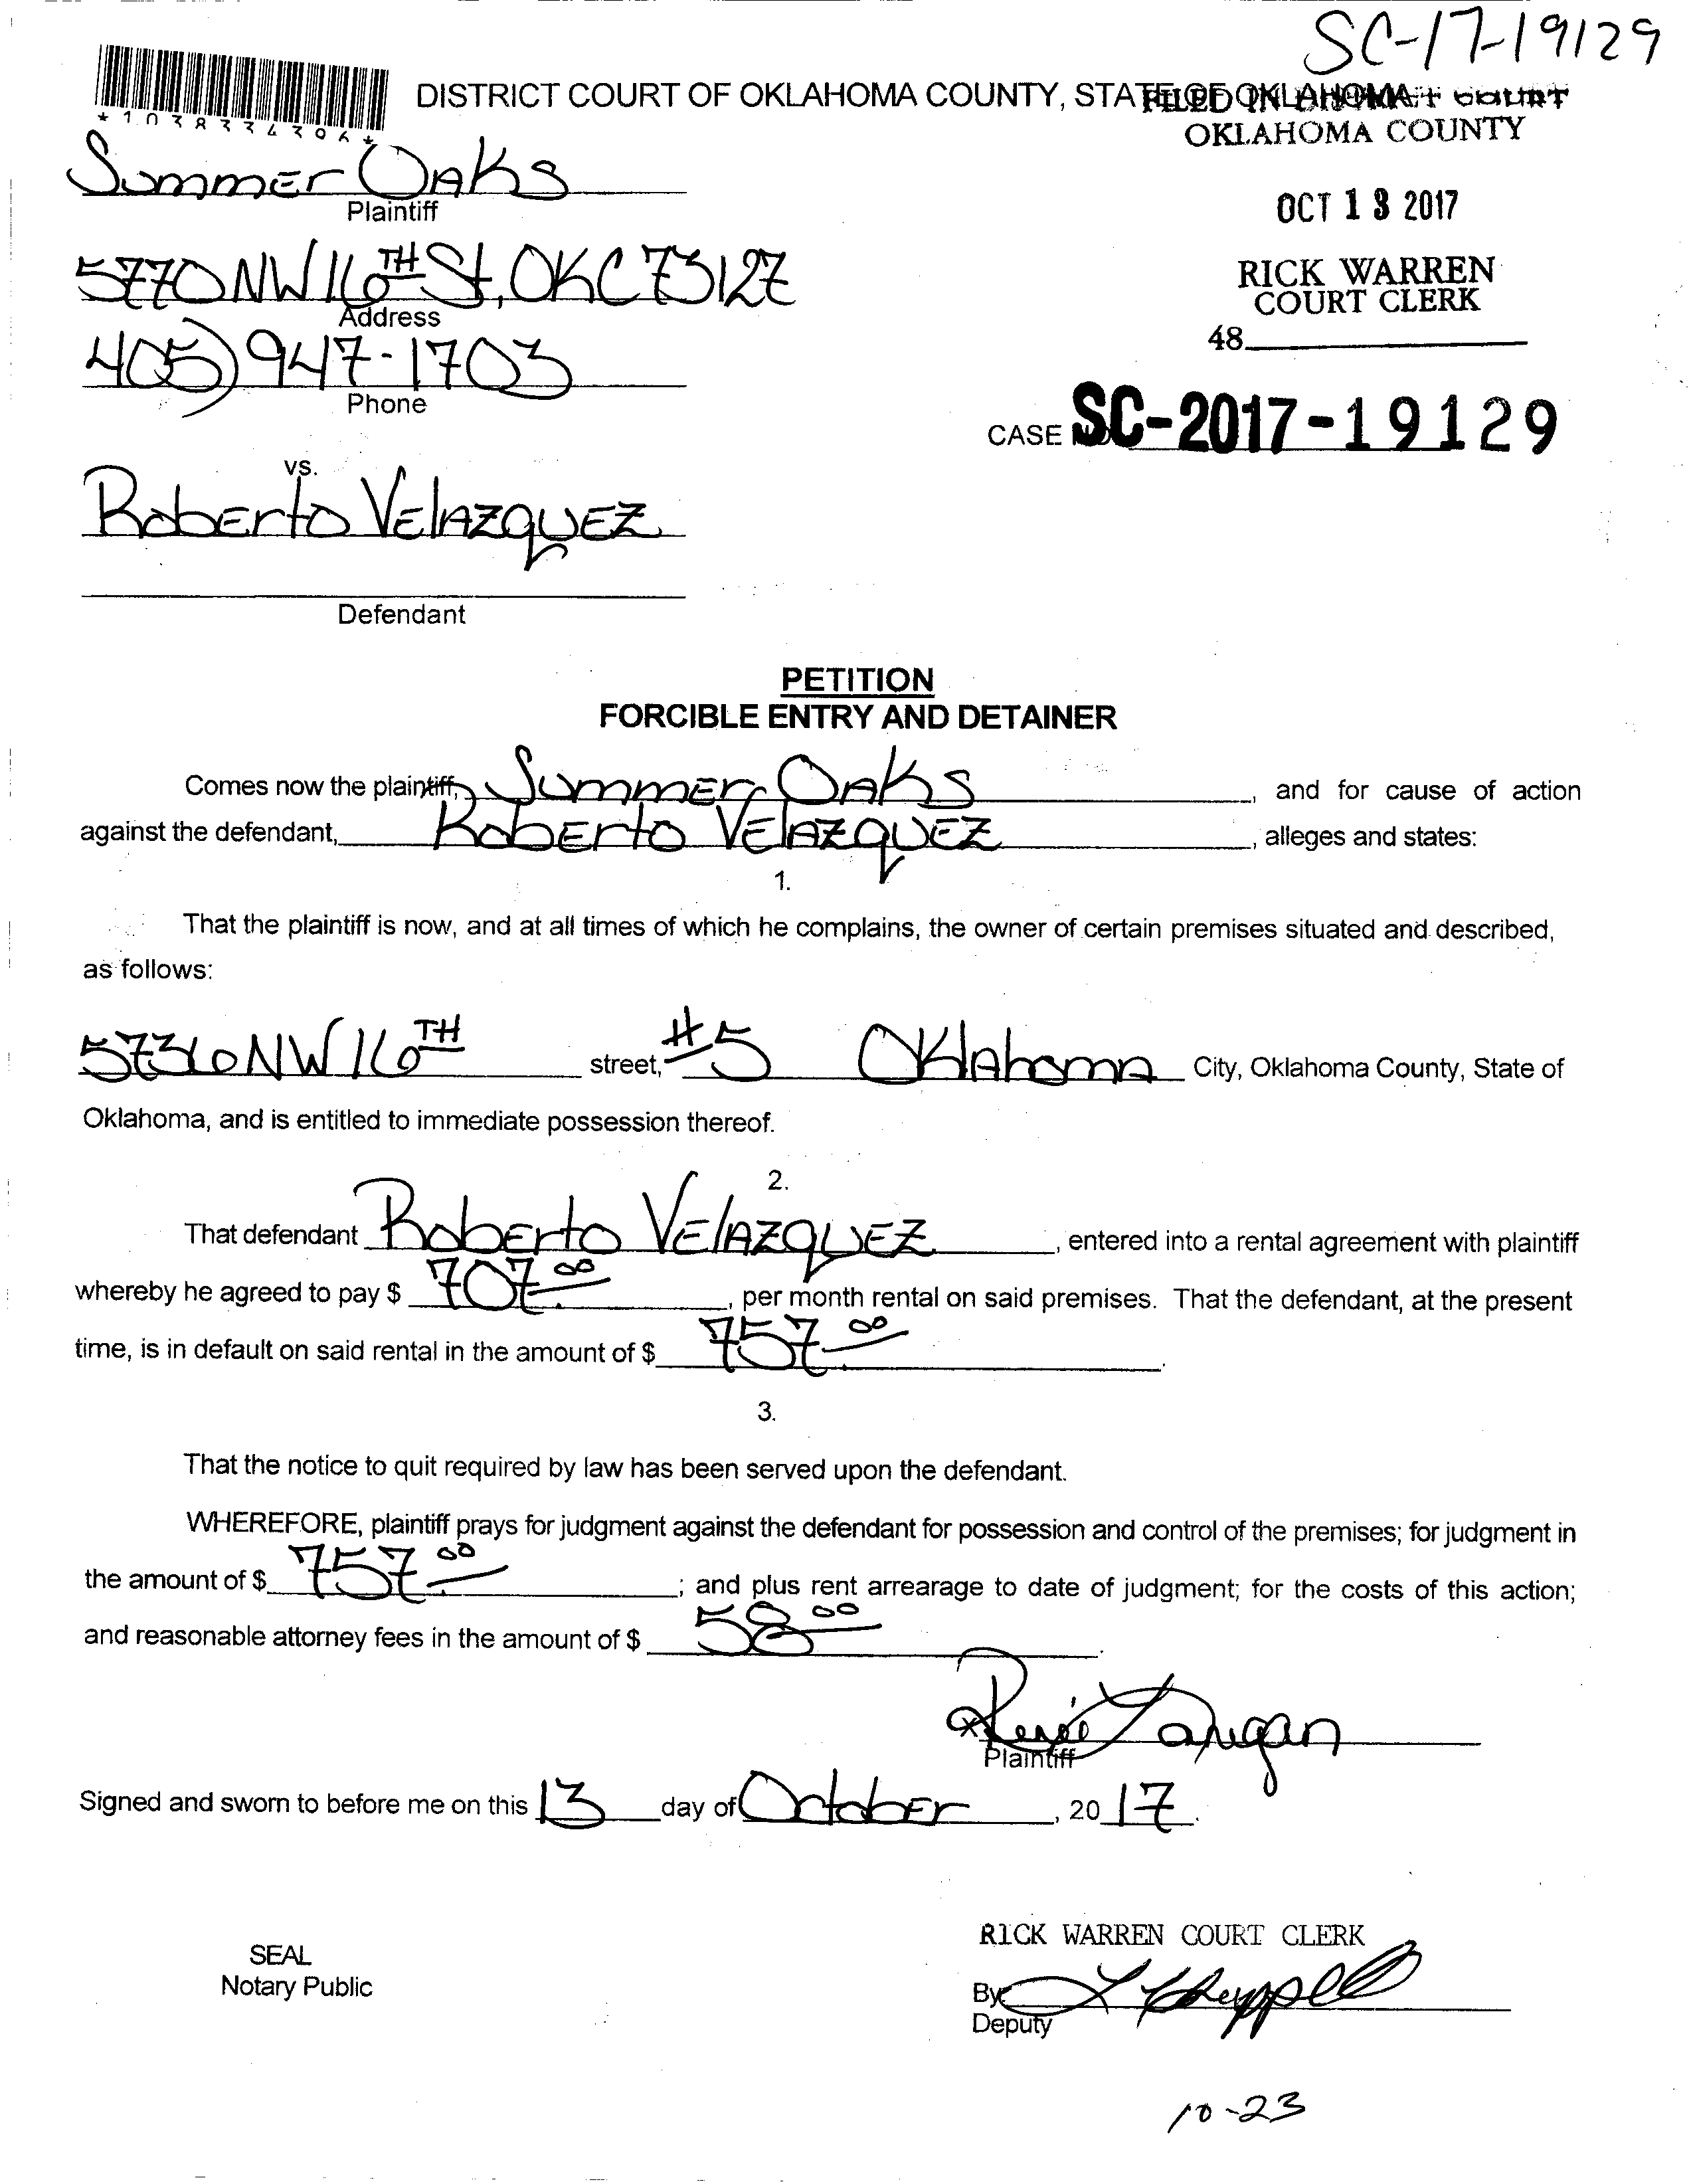 SC-17-19129
*1038334396*
DISTRICT COURT OF OKLAHOMA COUNTY, STATE OF OKLAHOMA
FILED IN DISTRICT COURT
OKLAHOMA COUNTY
Summer Oaks
Plaintiff
OCT 13 2017
5770 NW 16TH St, OKC 73127
Address
RICK WARREN
COURT CLERK
405) 947-1703
Phone
48
CASE NO. SC-2017-19129
vs.
Roberto Velazquez
Defendant
PETITION
FORCIBLE ENTRY AND DETAINER
Comes now the plaintiff, Summer Oaks, and for cause of action
against the defendant, Roberto Velazquez, alleges and states:
1.
That the plaintiff is now, and at all times of which he complains, the owner of certain premises situated and described,
as follows:
5736 NW 16TH street, #5 Oklahoma City, Oklahoma County, State of
Oklahoma, and is entitled to immediate possession thereof.
2.
That defendant Roberto Velazquez, entered into a rental agreement with plaintiff
whereby he agreed to pay $ 707.00, per month rental on said premises. That the defendant, at the present
time, is in default on said rental in the amount of $ 757.00.
3.
That the notice to quit required by law has been served upon the defendant.
WHEREFORE, plaintiff prays for judgment against the defendant for possession and control of the premises; for judgment in
the amount of $ 757.00; and plus rent arrearage to date of judgment; for the costs of this action;
and reasonable attorney fees in the amount of $ 58.00.
x Reneé Langan
Plaintiff
Signed and sworn to before me on this 13 day of October, 2017.
RICK WARREN COURT CLERK
SEAL
Notary Public
By:
Deputy
10-23